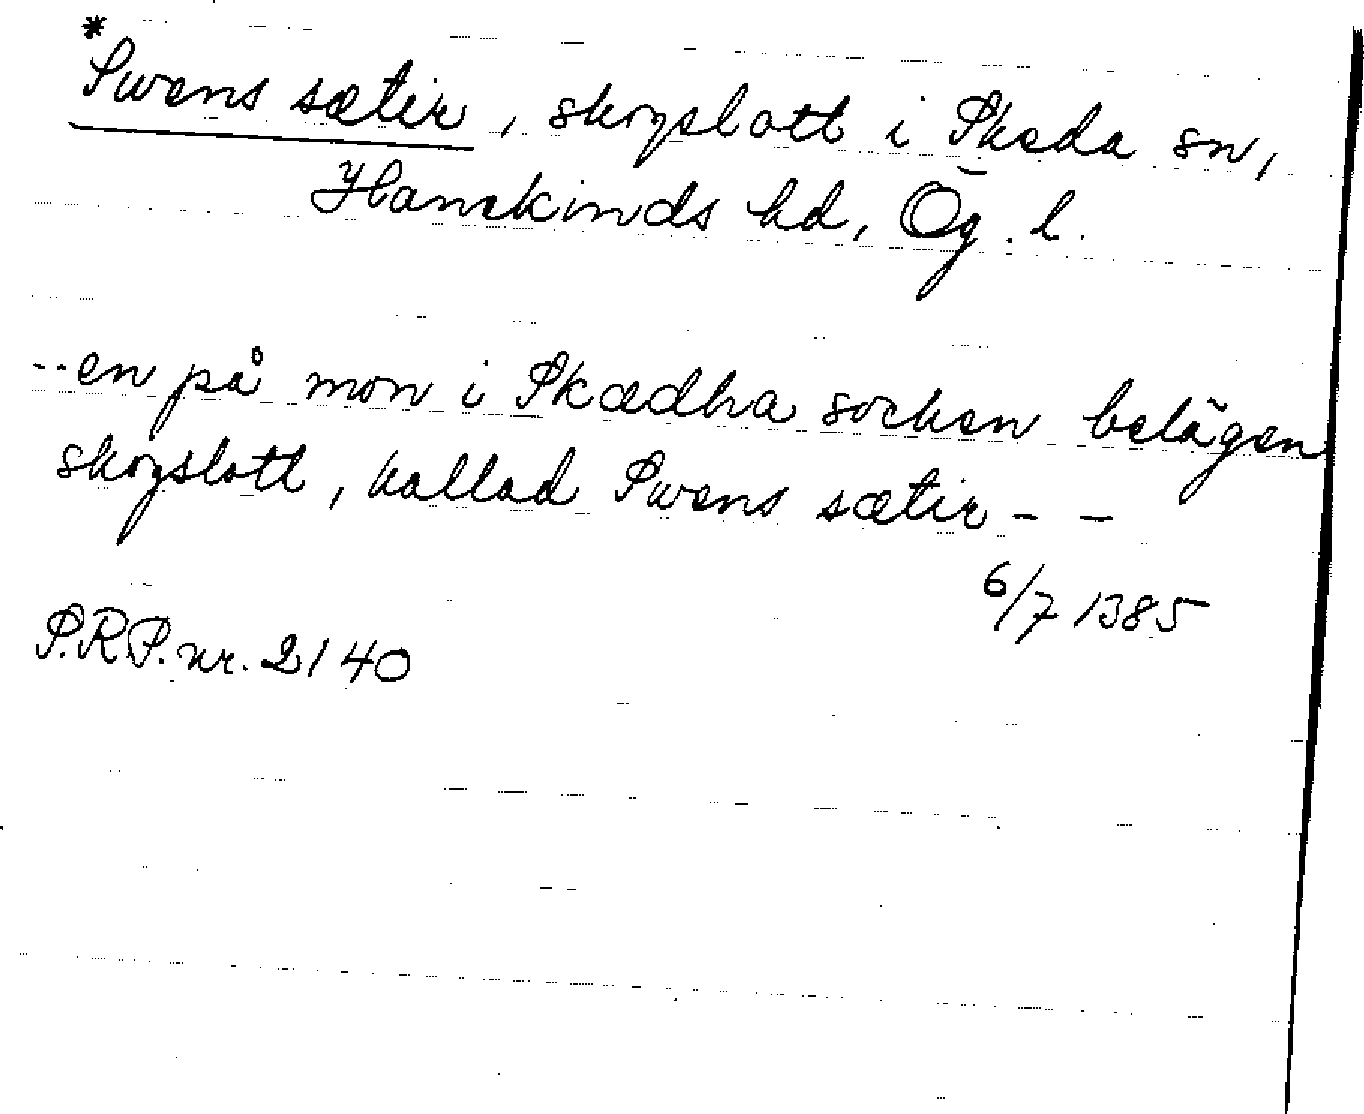 *
Swens sætir, skogslott i Skeda sn,
Hanekinds hd, Ög. l.
--en på mon i Skædha socken belägen
skogslott, kallad Swens sætir - -
6/7 1385
S.R.P. nr. 2140